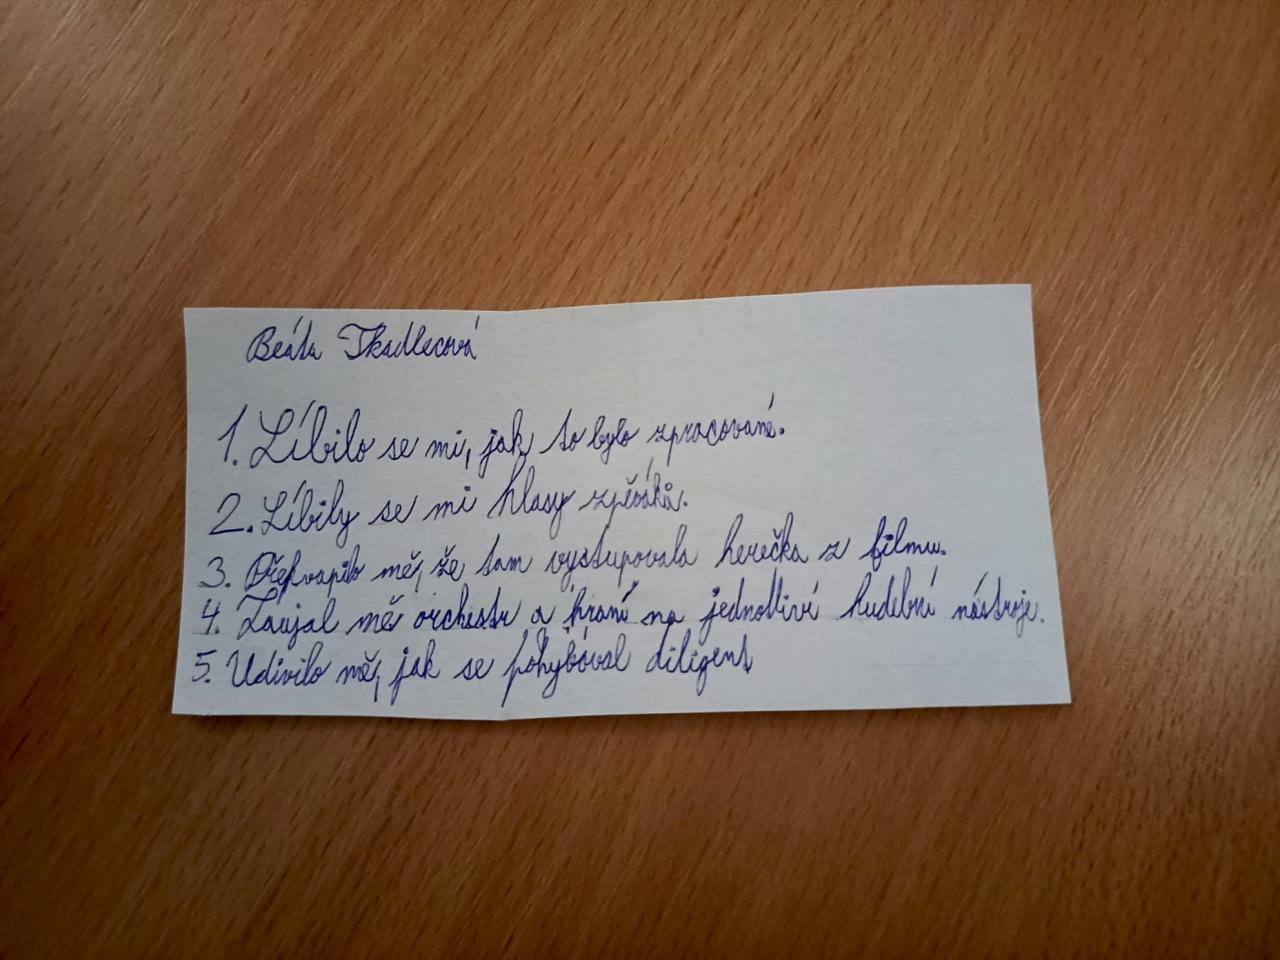 Beáta Tkadlecová
1. Líbilo se mi, jak to bylo zpracované.
2. Líbily se mi hlasy zpěváků.
3. Překvapilo mě, že tam vystupovala herečka z filmu.
4. Zaujal mě orchestr a hraní na jednotlivé hudební nástroje.
5. Udivilo mě, jak se pohyboval diligent